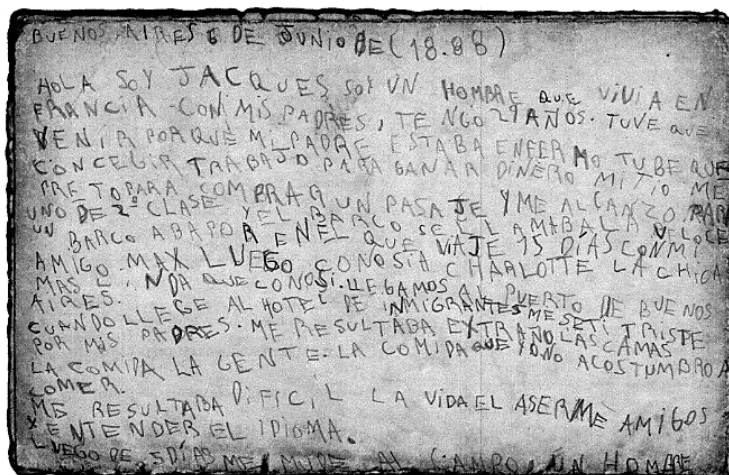 BUENOS AIRES 6 DE JUNIO DE (18.88)
HOLA SOY JACQUES SOY UN HOMBRE QUE VIVIA EN
FRANCIA CON MIS PADRES, TENGO 21 AÑOS. TUVE QUE
VENIR PORQUE MI PADRE ESTABA ENFERMO TUBE QUE
CONCEGIR TRABAJO PARA GANAR DINERO MI TIO ME
PRETO PARA COMPRAR UN PASAJE Y ME ALCANZO PARA
UNO DE 2ª CLASE Y EL BARCO SE LLAMABA LA VELOCE
UN BARCO ABAPOR EN EL QUE VIAJE 15 DIAS CON MI
AMIGO MAX LUEGO CONOSI A CHARLOTTE LA CHICA
MAS LINDA QUE CONOSI. LLEGAMOS AL PUERTO DE BUENOS
AIRES.
CUANDO LLEGE AL HOTEL DE INMIGRANTES ME SETI TRISTE
POR MIS PADRES. ME RESULTABA EXTRAÑO LAS CAMAS
LA COMIDA LA GENTE. LA COMIDA QUE YO NO ACOSTUMBRO A
COMER.
ME RESULTABA DIFICIL LA VIDA EL ASERME AMIGOS
Y ENTENDER EL IDIOMA.
LUEGO DE 5 DIAS ME MUDE AL CAMPO, UN HOMBRE